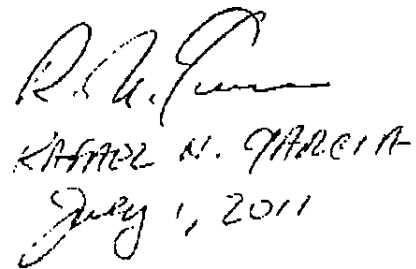 R. N. Garcia
RAFAEL N. GARCIA
July 1, 2011